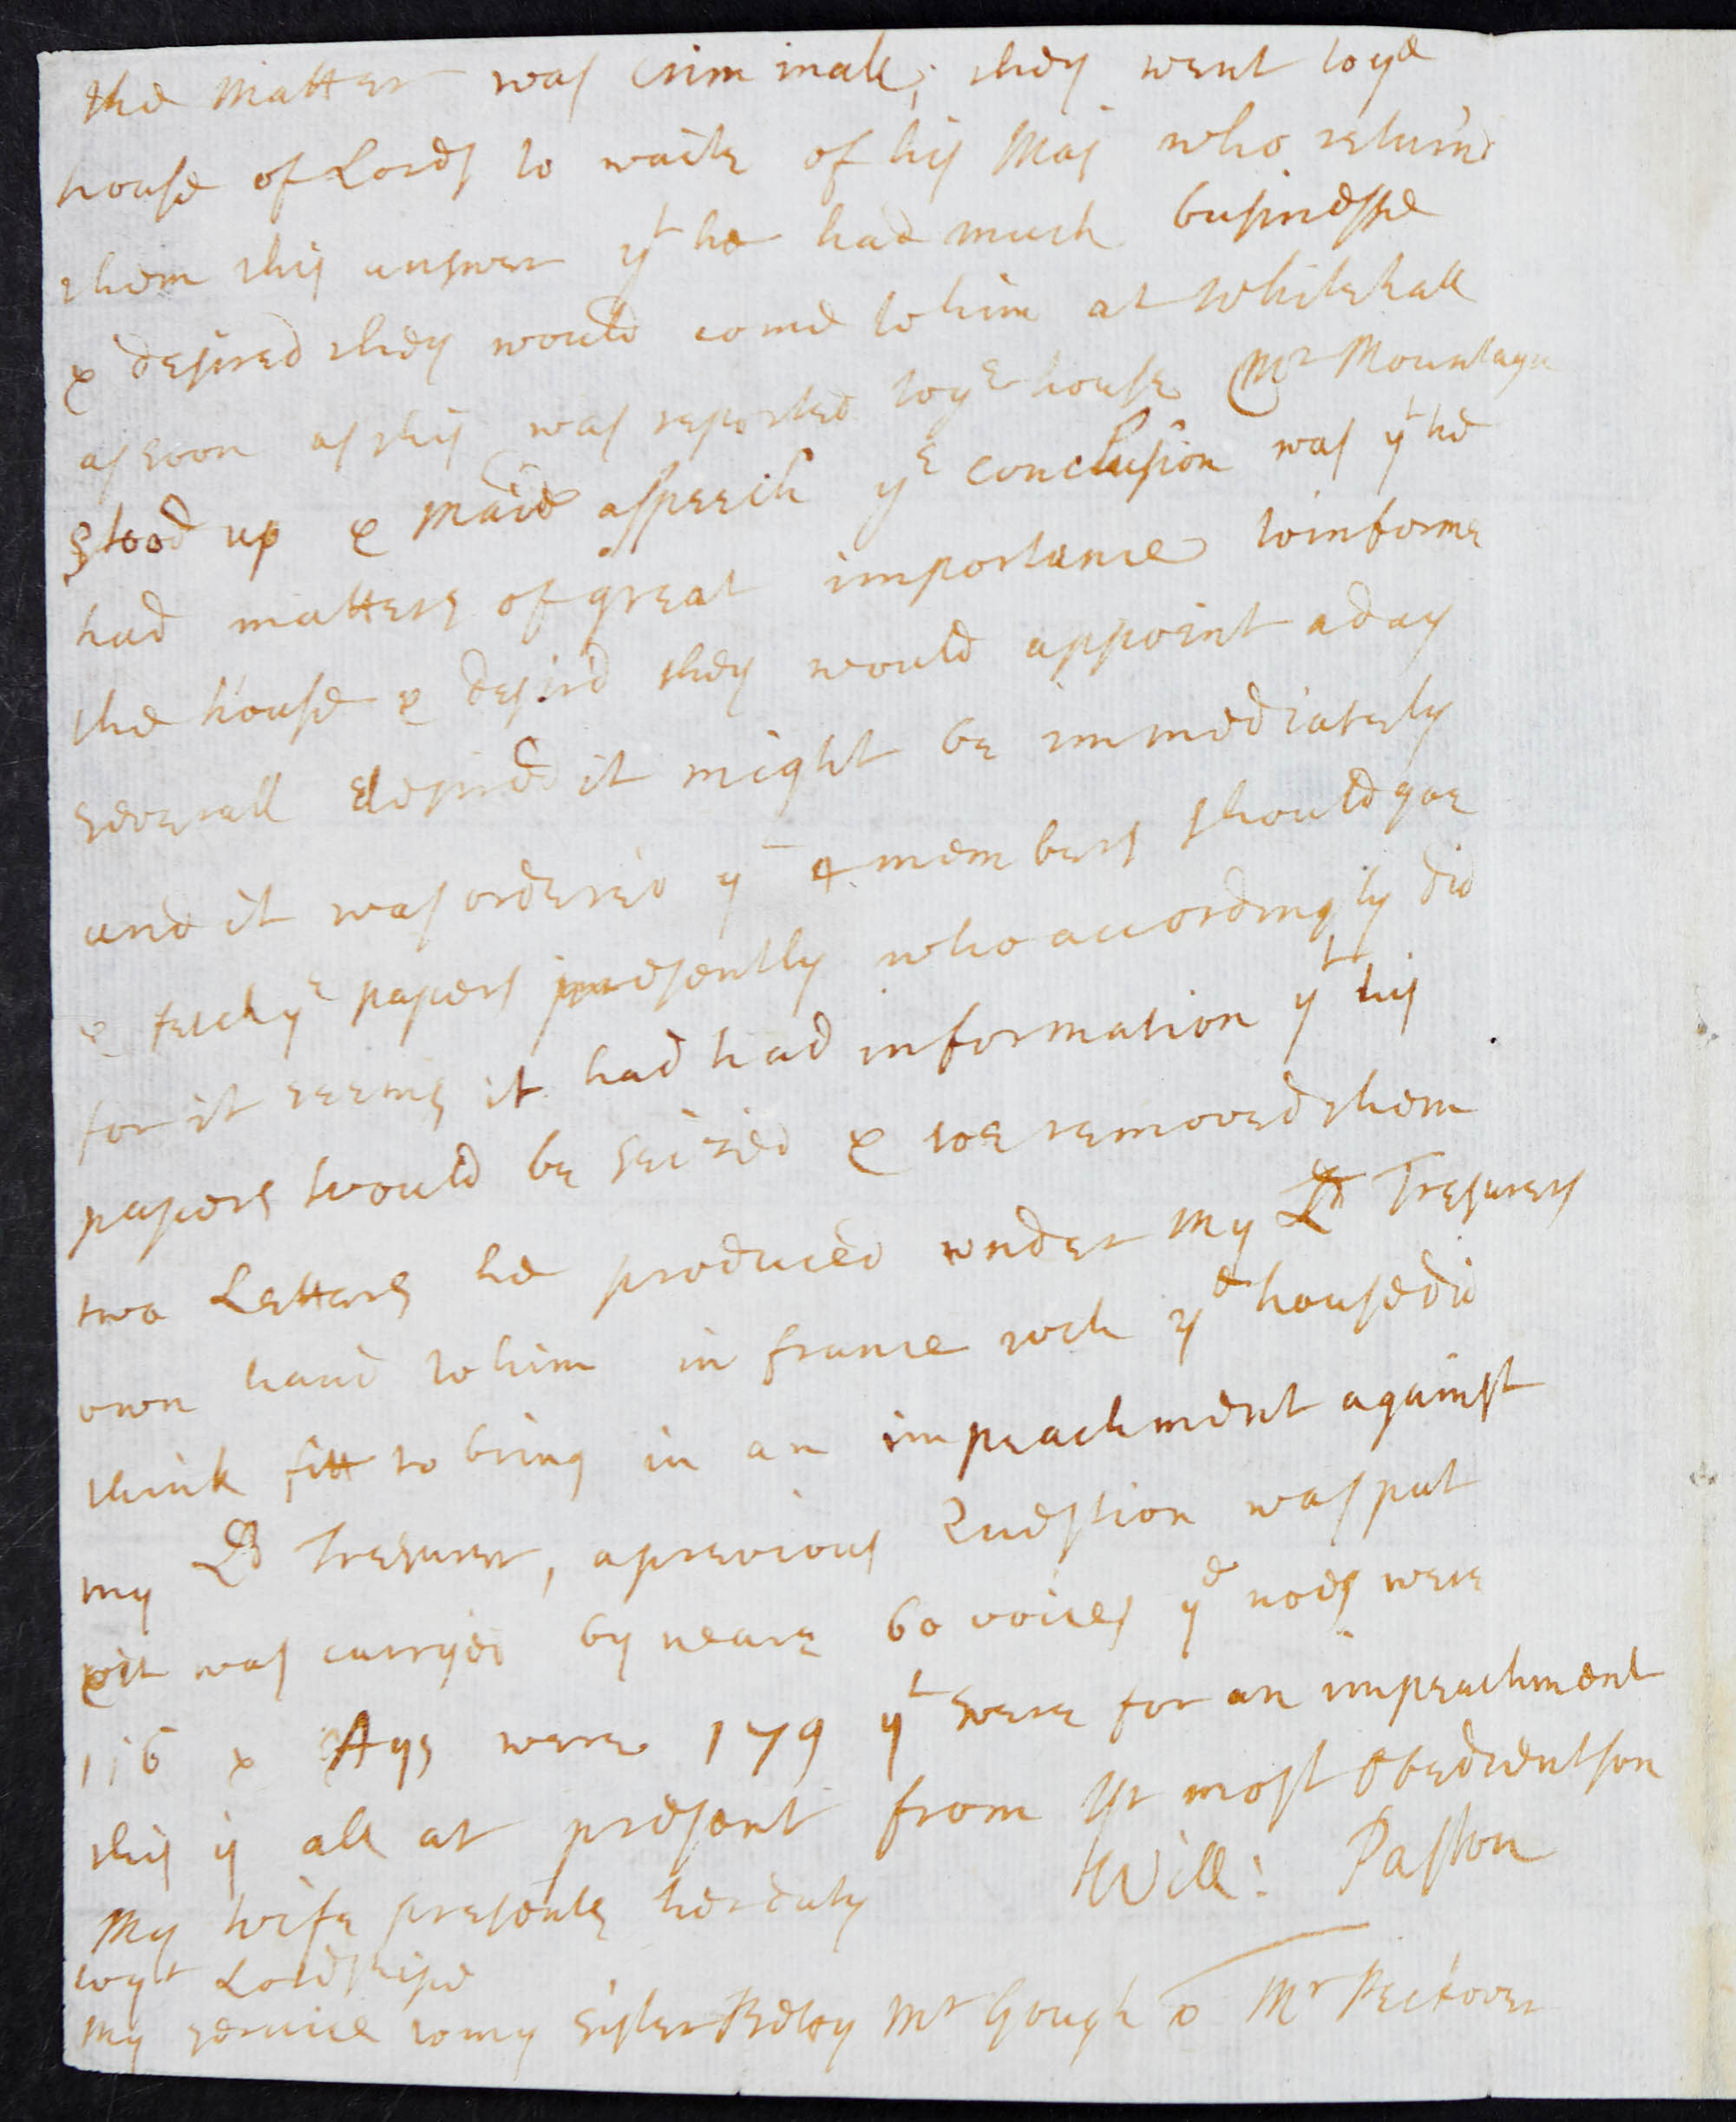 the Matter was Criminall, they went to ye
house of Lords to waite of his Maj who return'd
them this answer yt he had much businesse
& desired they would come to him at Whitehall
as soon as this was reported to ye house Mr Mountagu
stood up & maid a speech ye conclusion was yt he
had matters of great importance to informe
the house & desir'd they would appoint a day
severall desired it might be immediately
and it was order'ed yt 4 members should goe
& fetch ye papers presently who accordingly did
for it seems it had had information yt his
papers would be seized & soe removed them
two Letters he produced under my Ld Tresurers
own hand to him in france wch ye house did
think fitt to bring in an impeachment against
my Ld Tresurer, a previous Question was put
& it was carryed by neare 60 voices ye noes were
116 & Ays were 179 yt were for an impeachment
this is all at present from yr most obedient son
My wife presents her duty Will: Paston
to yr Lordshipe
My service to my sister Betty Mr Gough & Mr Peckover